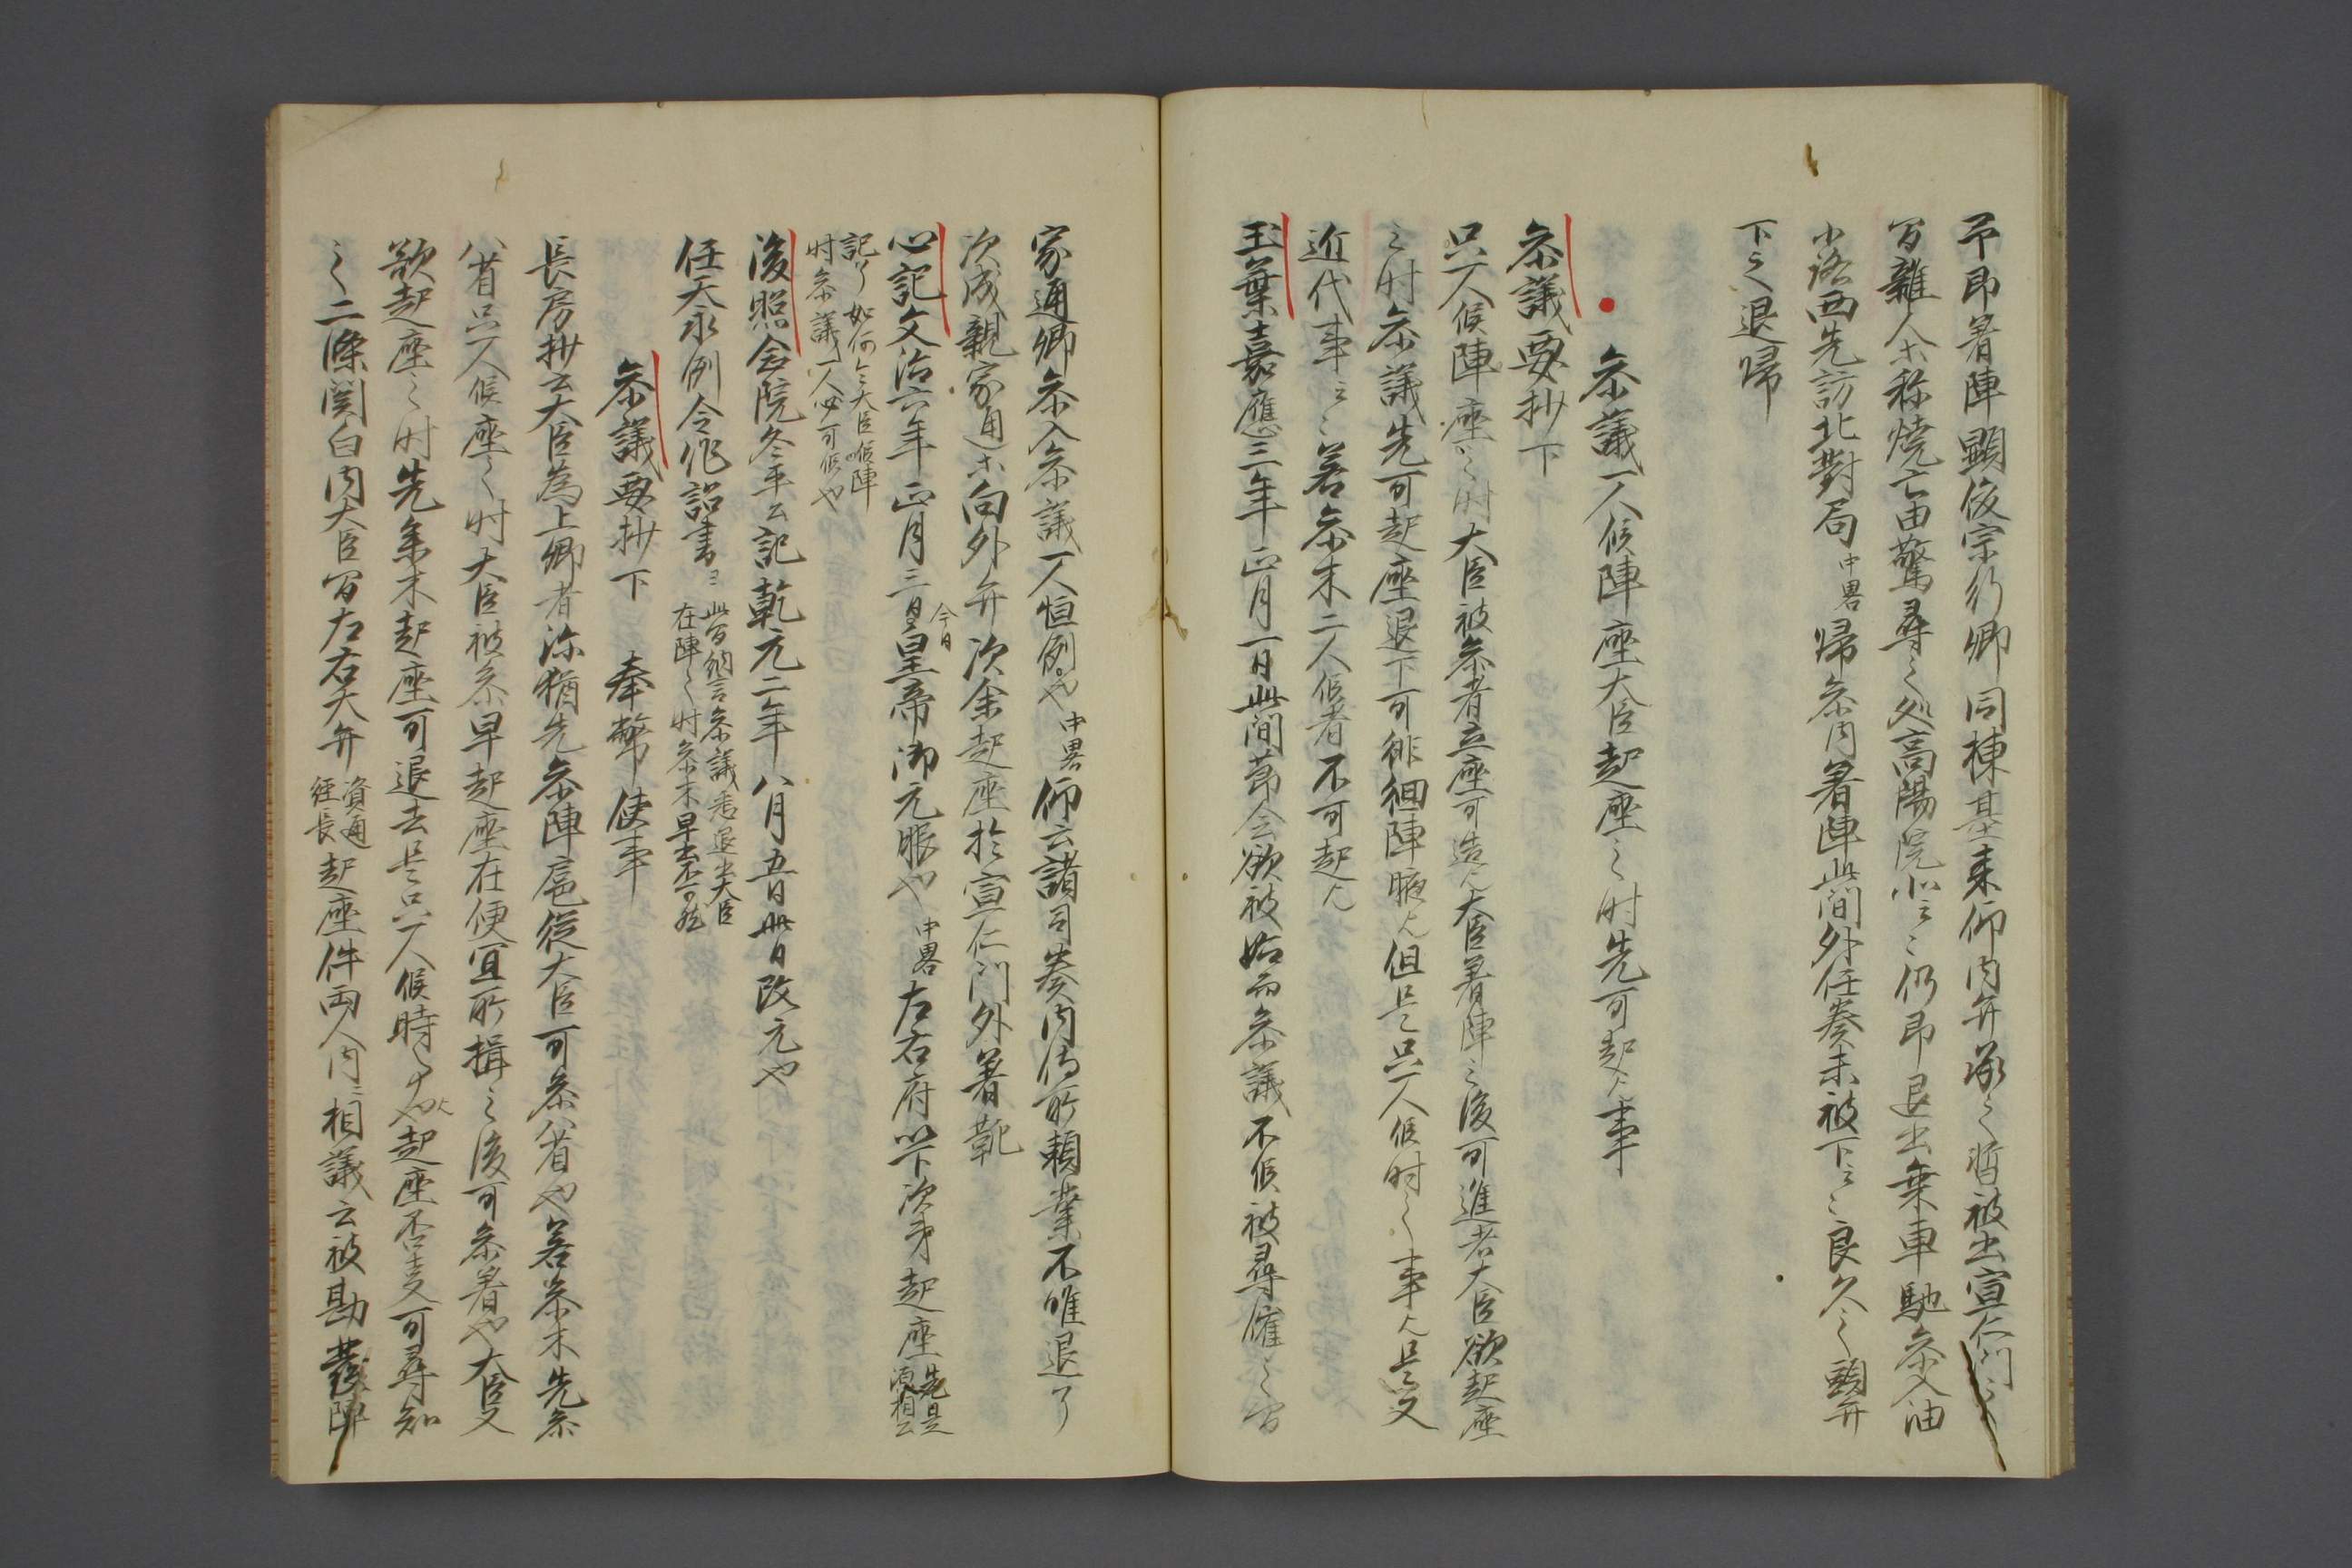 予即著陣顕俊宗行卿同棟基来仰内弁承之暫被出宣仁門之
間雑人等称焼亡由驚尋之処高陽院北云々仍即退出乗車馳参入油
小路西先訪北對局中畧歸参内著陣此間外任奏未被下云々良久之頭弁
下之退歸
参議一人候陣座大臣起座之時先可起人事
参議要抄下
只一人候陣座之時大臣被参者立座可造人大臣著陣之後可進者大臣欲起座
之時参議先可起座退下可徘徊陣腋人但是只一人候時之事人是又
近代事云々若参木二人候者不可起人
玉葉嘉應三年正月一日此間節会欲被始而参議不候被尋催之間
家通卿参入参議一人恒例也中畧仰云諸司奏内侍所頼業不唯退了
次成親家通等向外弁次余起座於宣仁門外著靴
心記文治六年正月三日今日皇帝御元服也中畧左右府以下次第起座先是源相公
記了如何令大臣唯陣
時参議一人必可候也
後照念院冬平公記乾元二年八月五日此日改元也
任天永例令作詔書云此間納言参議悉退出大臣
在陣之時参木早出不可然
参議要抄下 奉幣使事
長房抄云大臣為上卿者添猶先参陣扈従大臣可参八省也若参木先参
八省只一人候座之時大臣被参早起座在便宜所揖之後可参著也大臣又
欲起座之時先参木起座可退去是只一人候時事也人起座否事可尋知
之二條関白内大臣間左右大弁資通経長起座件両人内々相議云被勘發陣